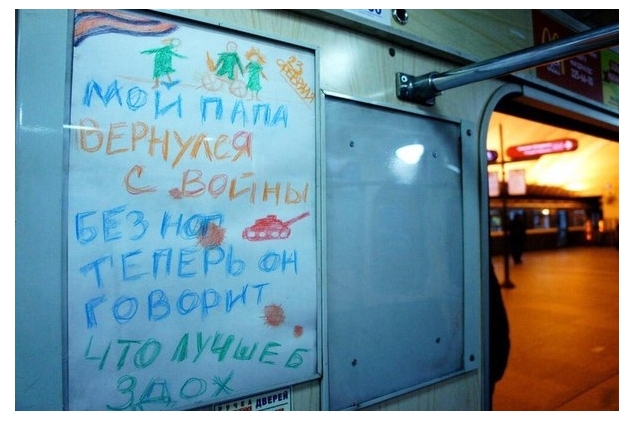 23
ФЕВРАЛЯ
МОЙ ПАПА
ВЕРНУЛСЯ
С ВОЙНЫ
БЕЗ НОГ
ТЕПЕРЬ ОН
ГОВОРИТ
ЧТО ЛУЧШЕ Б
ЗДОХ
РУЧКА ДВЕРЕЙ